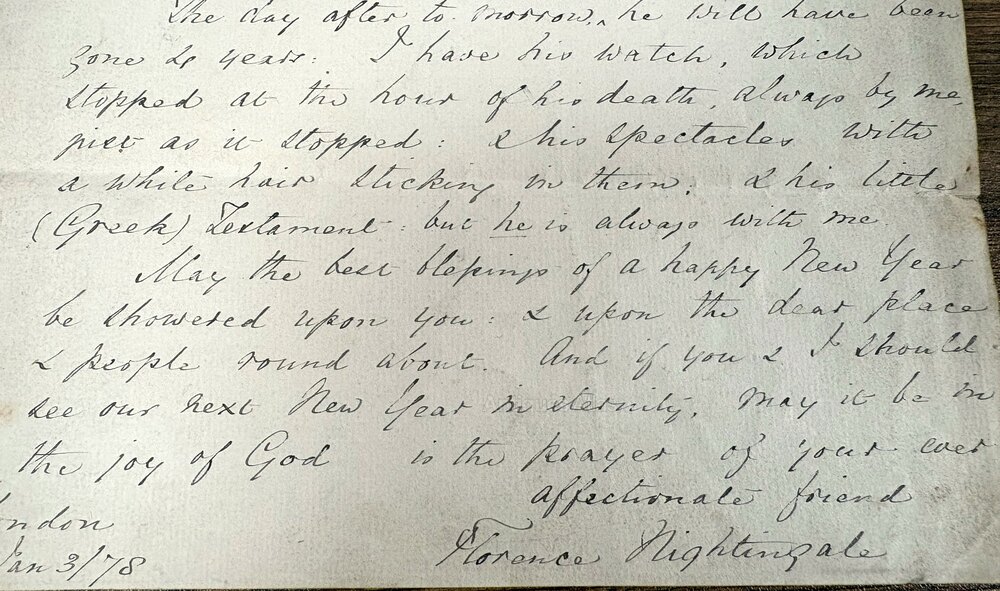 The day after to-morrow, he will have been
gone 4 years: I have his watch, which
stopped at the hour of his death, always by me,
just as it stopped: & his spectacles with
a white hair sticking in them: & his little
(Greek) Testament: but he is always with me
May the best blessings of a happy New Year
be showered upon you: & upon the dear place
& people round about. And if you & I should
see our next New Year in eternity, may it be in
the joy of God is the prayer of your ever
affectionate friend
Florence Nightingale
ndon
Jan 3/78